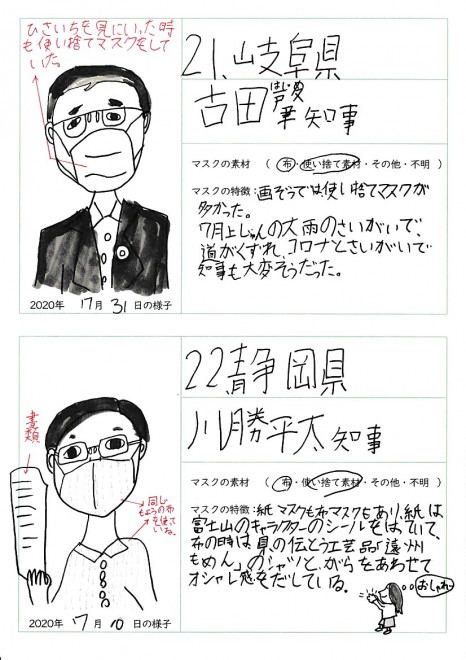 ひさいちを見にいった時
も使い捨てマスクをして
いた
2020年 7月 31日の様子
21.岐阜県
古田肇知事
はじめ
マスクの素材 (布・使い捨て素材・その他・不明)
マスクの特徴:画ぞうでは使い捨てマスクが
多かった。
7月上じゅんの大雨のさいがいで、
道がくずれ、コロナとさいがいで
知事も大変そうだった。
書類
同じ
もようの布
を使って
いね。
2020年 7月 10日の様子
22.静岡県
川勝平太知事
マスクの素材 (布・使い捨て素材・その他・不明)
マスクの特徴:紙マスクも布マスクもあり、紙は
富士山のキャラクターのシールをはっていて、
布の時は、県の伝とう工芸品「遠州
もめん」のシャツと、がらをあわせて
オシャレ感をだしている。
おしゃれ〜